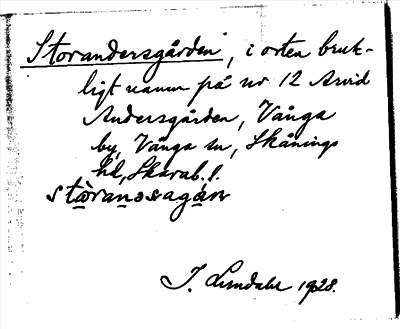 Storandersgården, i orten bruk-
ligt namn på nr 12 Arvid
Andersgården, Vånga
by, Vånga sn, Skånings
hd, Skarab. l.
stàranəsagán
J. Lundahl 1928.